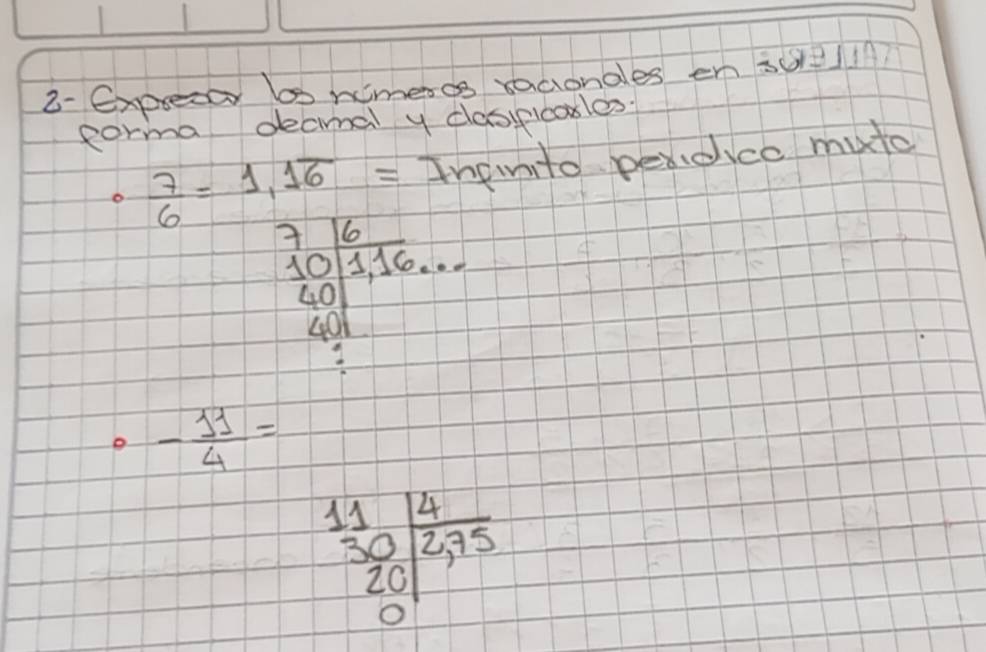 2- Expresar los números racionales en
forma decimal y clasificarlos:
• 7/6 = 1,16̅ = Infinito periódico mixto
7 | 6
10 | 1,16...
40
40
⋮
• - 11/4 =
11 | 4
30 | 2,75
20
0